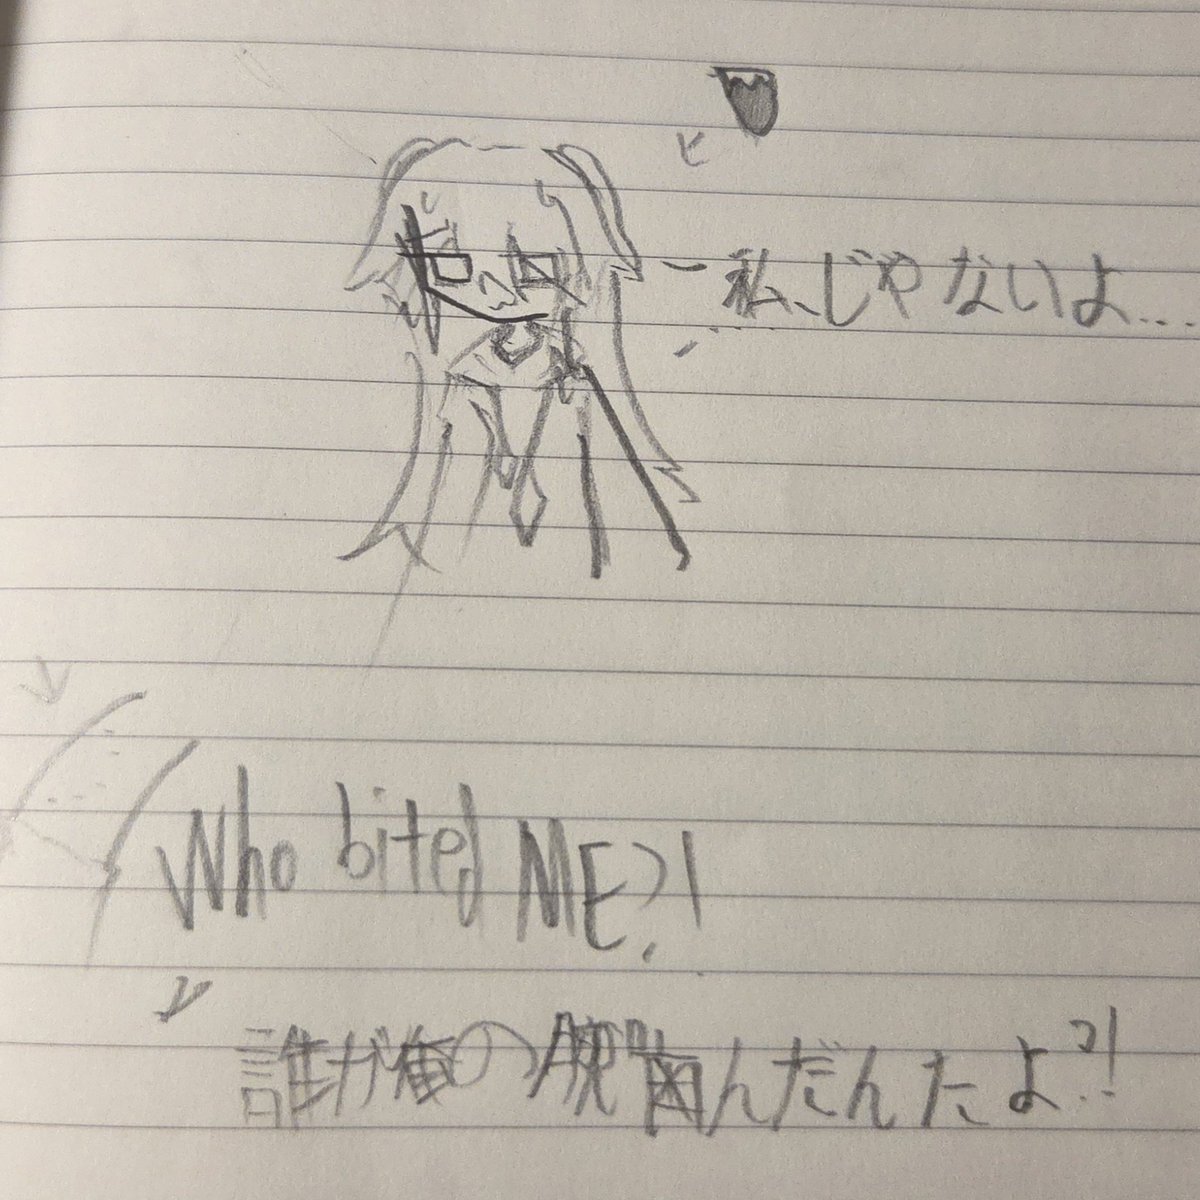 私じゃないよ...
Who bited ME?!
誰が俺の腕噛んだんたよ?!